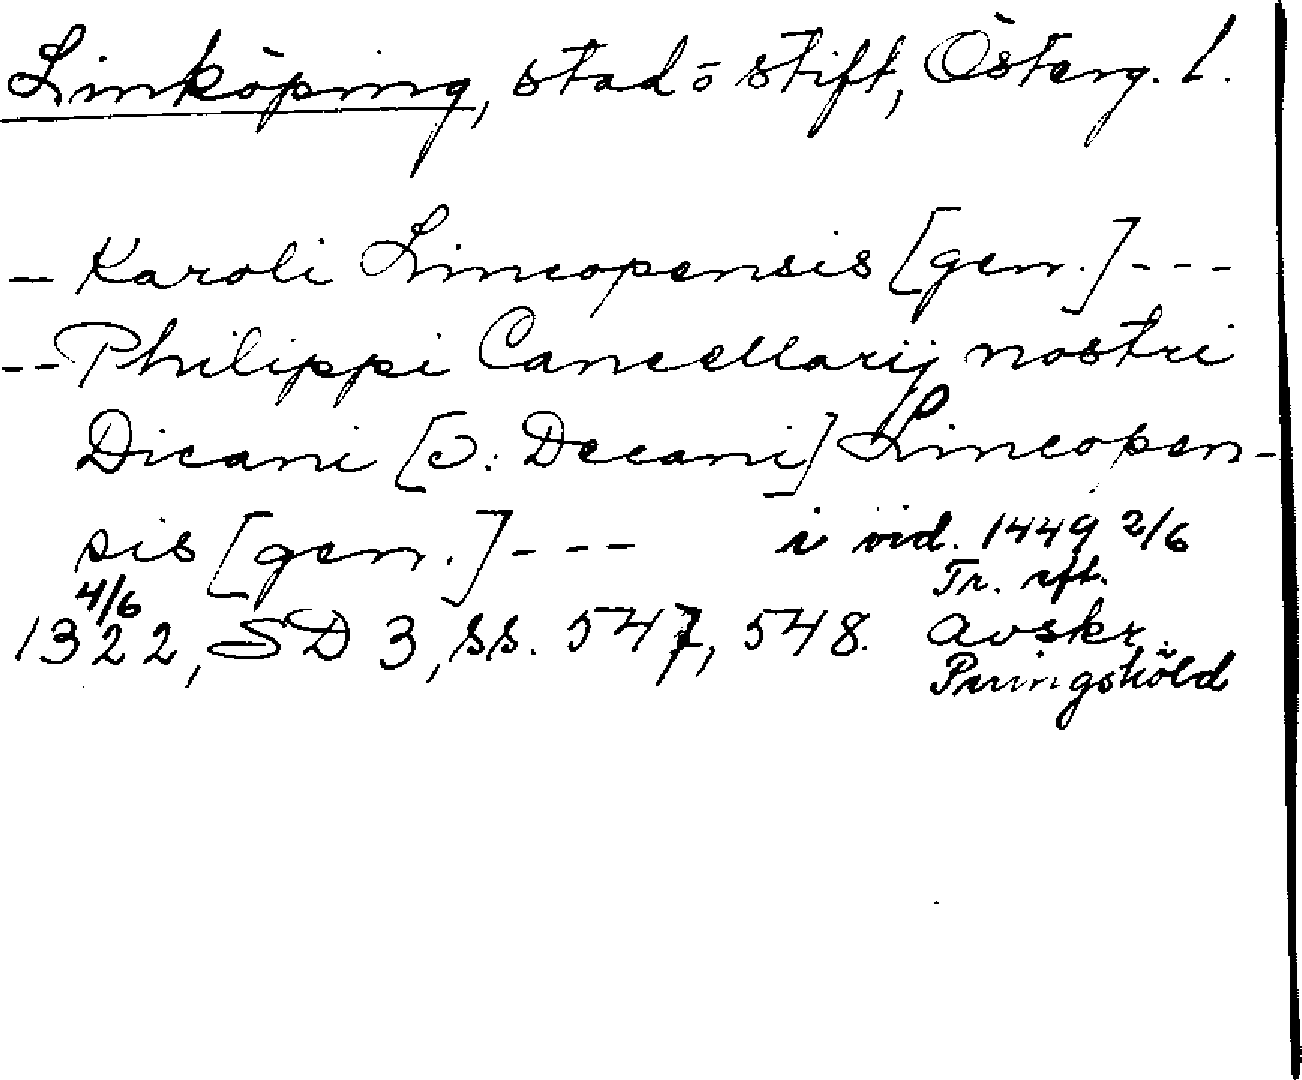 Linköping, stad o stift, Österg. l.
- Karoli Lincopensis [gen.] ---
-- Philippi Cancellarij nostri
Dicani [ɔ: Decani] Lincopen-
sis [gen.] --- i vid. 1449 2/6
Tr. eft.
4/6
1322, SD 3, ss. 547, 548. avskr.
Peringsköld